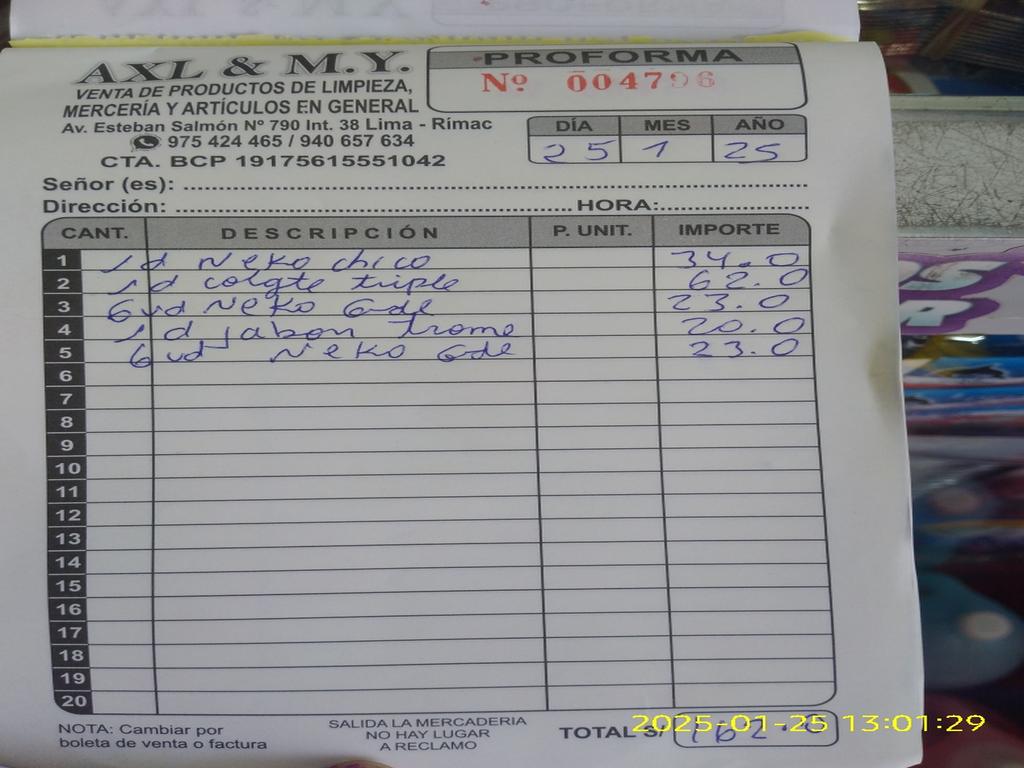 AXL & M.Y.
VENTA DE PRODUCTOS DE LIMPIEZA,
MERCERÍA Y ARTÍCULOS EN GENERAL
Av. Esteban Salmón Nº 790 Int. 38 Lima - Rímac
975 424 465 / 940 657 634
CTA. BCP 19175615551042
PROFORMA
Nº 004796
DÍA MES AÑO
25 1 25
Señor (es):
Dirección: HORA:
CANT. DESCRIPCIÓN P. UNIT. IMPORTE
1 1 d Neko chico 34.0
2 1 d colgte triple 62.0
3 6 vd Neko Gde 23.0
4 1 d jabon trome 20.0
5 6 vd Neko Gde 23.0
6
7
8
9
10
11
12
13
14
15
16
17
18
19
20
NOTA: Cambiar por
boleta de venta o factura
SALIDA LA MERCADERIA
NO HAY LUGAR
A RECLAMO
TOTAL S/ 162.0
2025-01-25 13:01:29